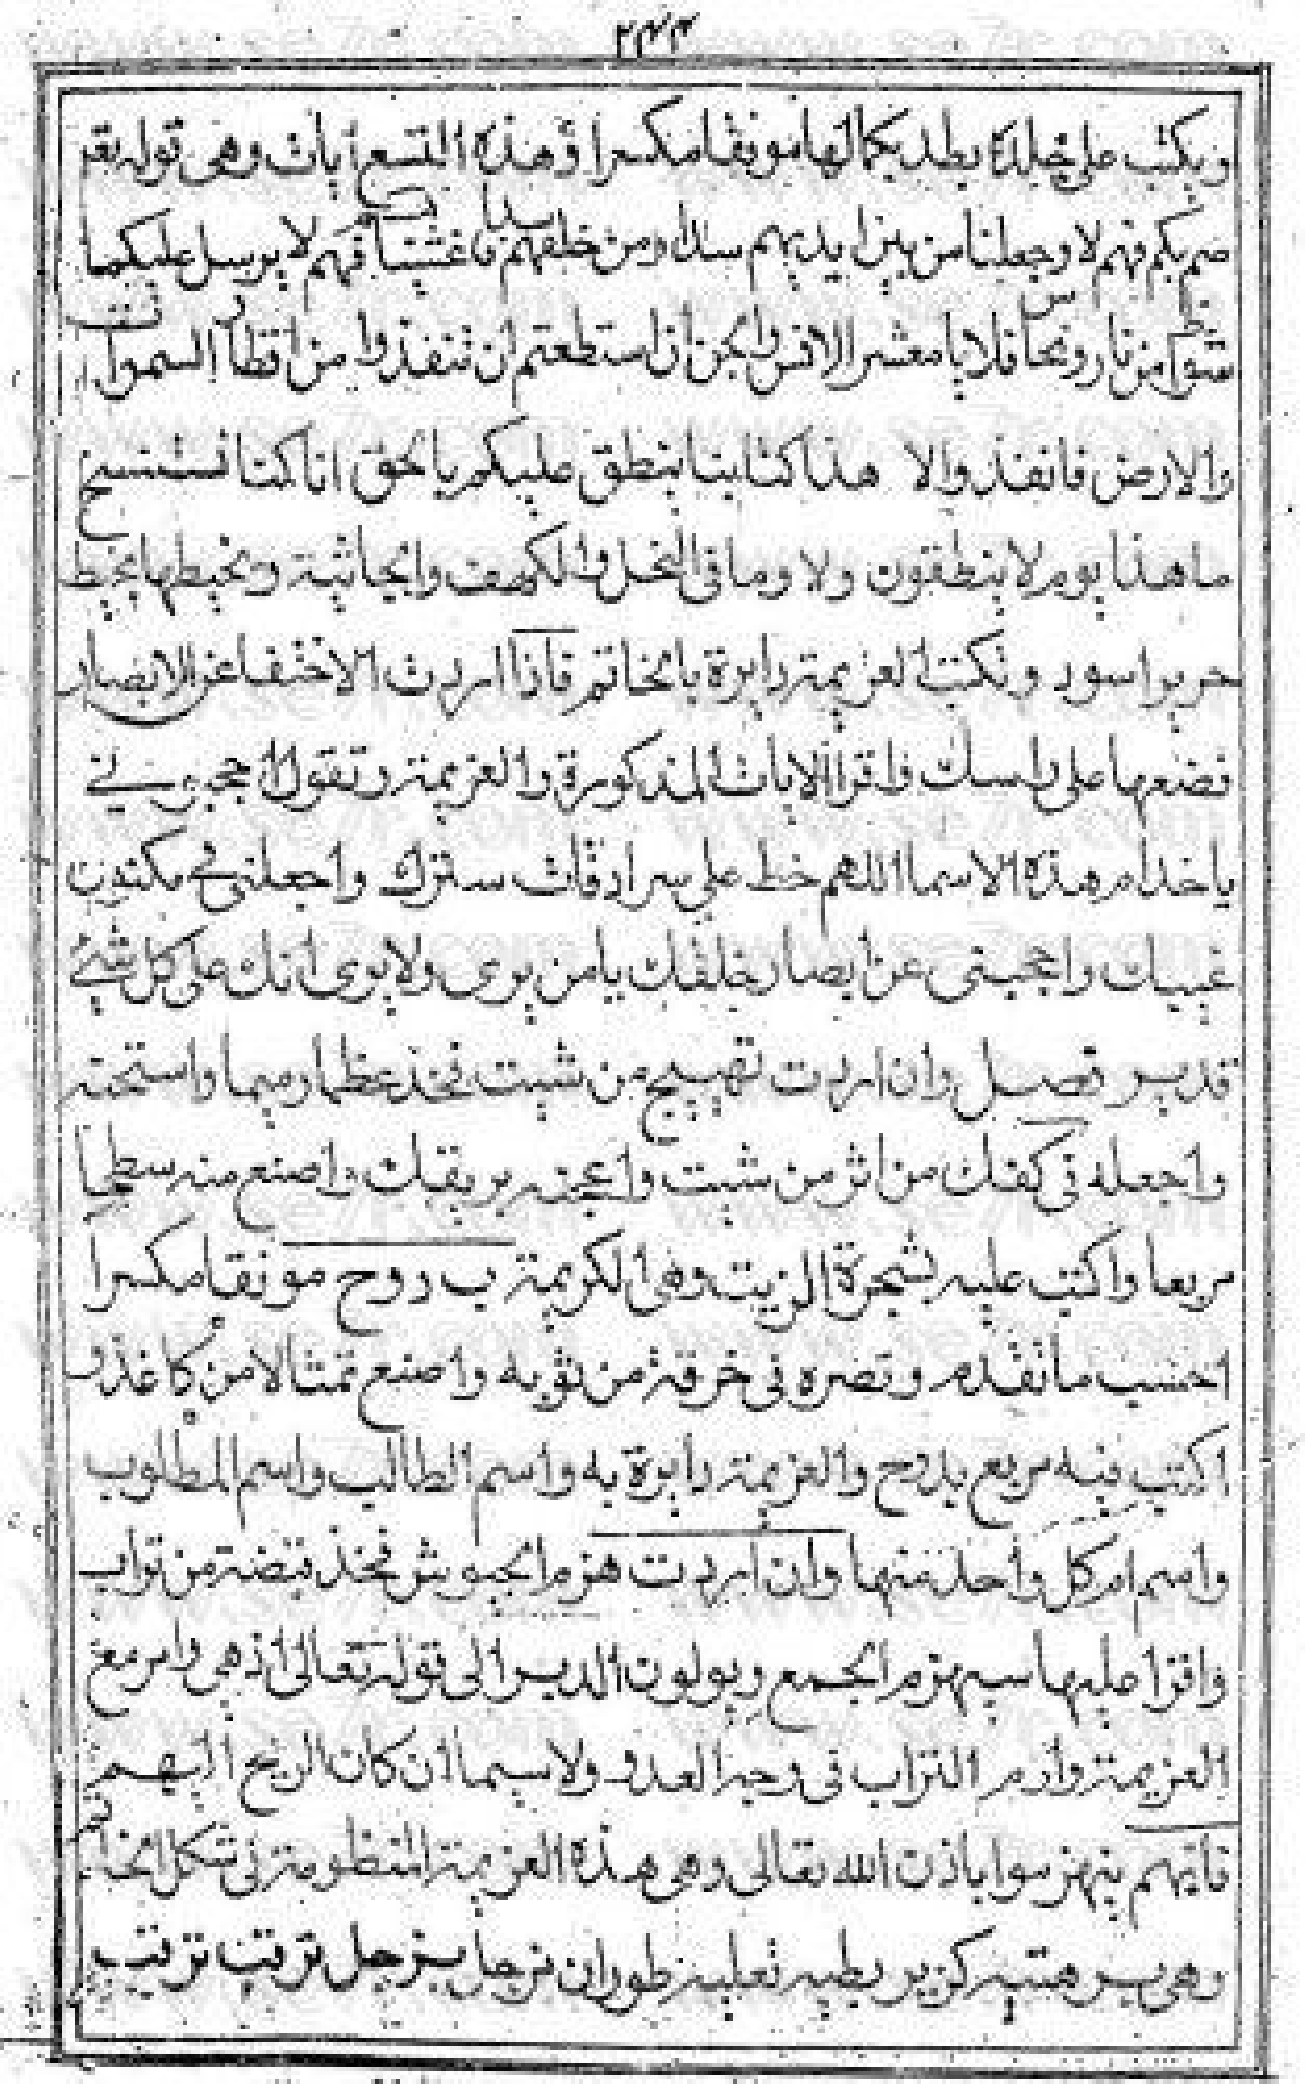 ٢٤٤
ويكتب على جلدة بطد بكمالها موفقا مكسرا وهذه التسع ايات وهى قوله تع
صم بكم فهم لا وجعلنا من بين ايديهم سدا ومن خلفهم سدا فاغشينا فهم لا يرسل عليكما
شواظ من نار ونحاس فلا يا معشر الانس والجن ان استطعتم ان تنفذوا من اقطار السموات
والارض فانفذوا لا هذا كتابنا ينطق عليكم بالحق انا كنا نستنسخ
ما هذا يوم لا ينطقون ولا وما فى النحل والكهف والجاثية وتخيطها بخيط
حرير اسود وتكتب العزيمة دايرة بالخاتم فاذا اردت الاختفا عن الابصار
فضعها على راسك واقرا الايات المذكورة والعزيمة وتقول احجبونى
يا خدام هذه الاسما اللهم حط على سرادقات سترك واجعلنى فى مكنون
غيبك واحجبنى عن ابصار خلقك يا من يرى ولا يرى انك على كل شئ
قدير فصل وان اردت تهييج من شيت فخذ عظما رميما واسحقه
واجعله فى كفك من اثر من شيت واعجنه بريقك واصنع منه سطحا
مربعا واكتب عليه بشجرة الزيت وهى الكريمة ب دوح موفقا مكسرا
احسب ما تقدم وتصره فى خرقة من ثوبه واصنع تمثالا من كاغذ و
اكتب فيه مربع بدوح والعزيمة دايرة به واسم الطالب واسم المطلوب
واسم ام كل واحد منهما وان اردت هزم الجيوش فخذ قبضة من تراب
واقرا عليها سيهزم الجمع ويولون الدبر الى قوله تعالى ادهى وامر مع
العزيمة وارم التراب فى وجه العدو ولا سيما ان كان الريح اليهم
فانهم ينهزموا باذن الله تعالى وهى هذه العزيمة المنظومة فى شكل الخاتم
وهى برهتيه كرير تطيه طوران مزجل بزجل ترقب ترقب